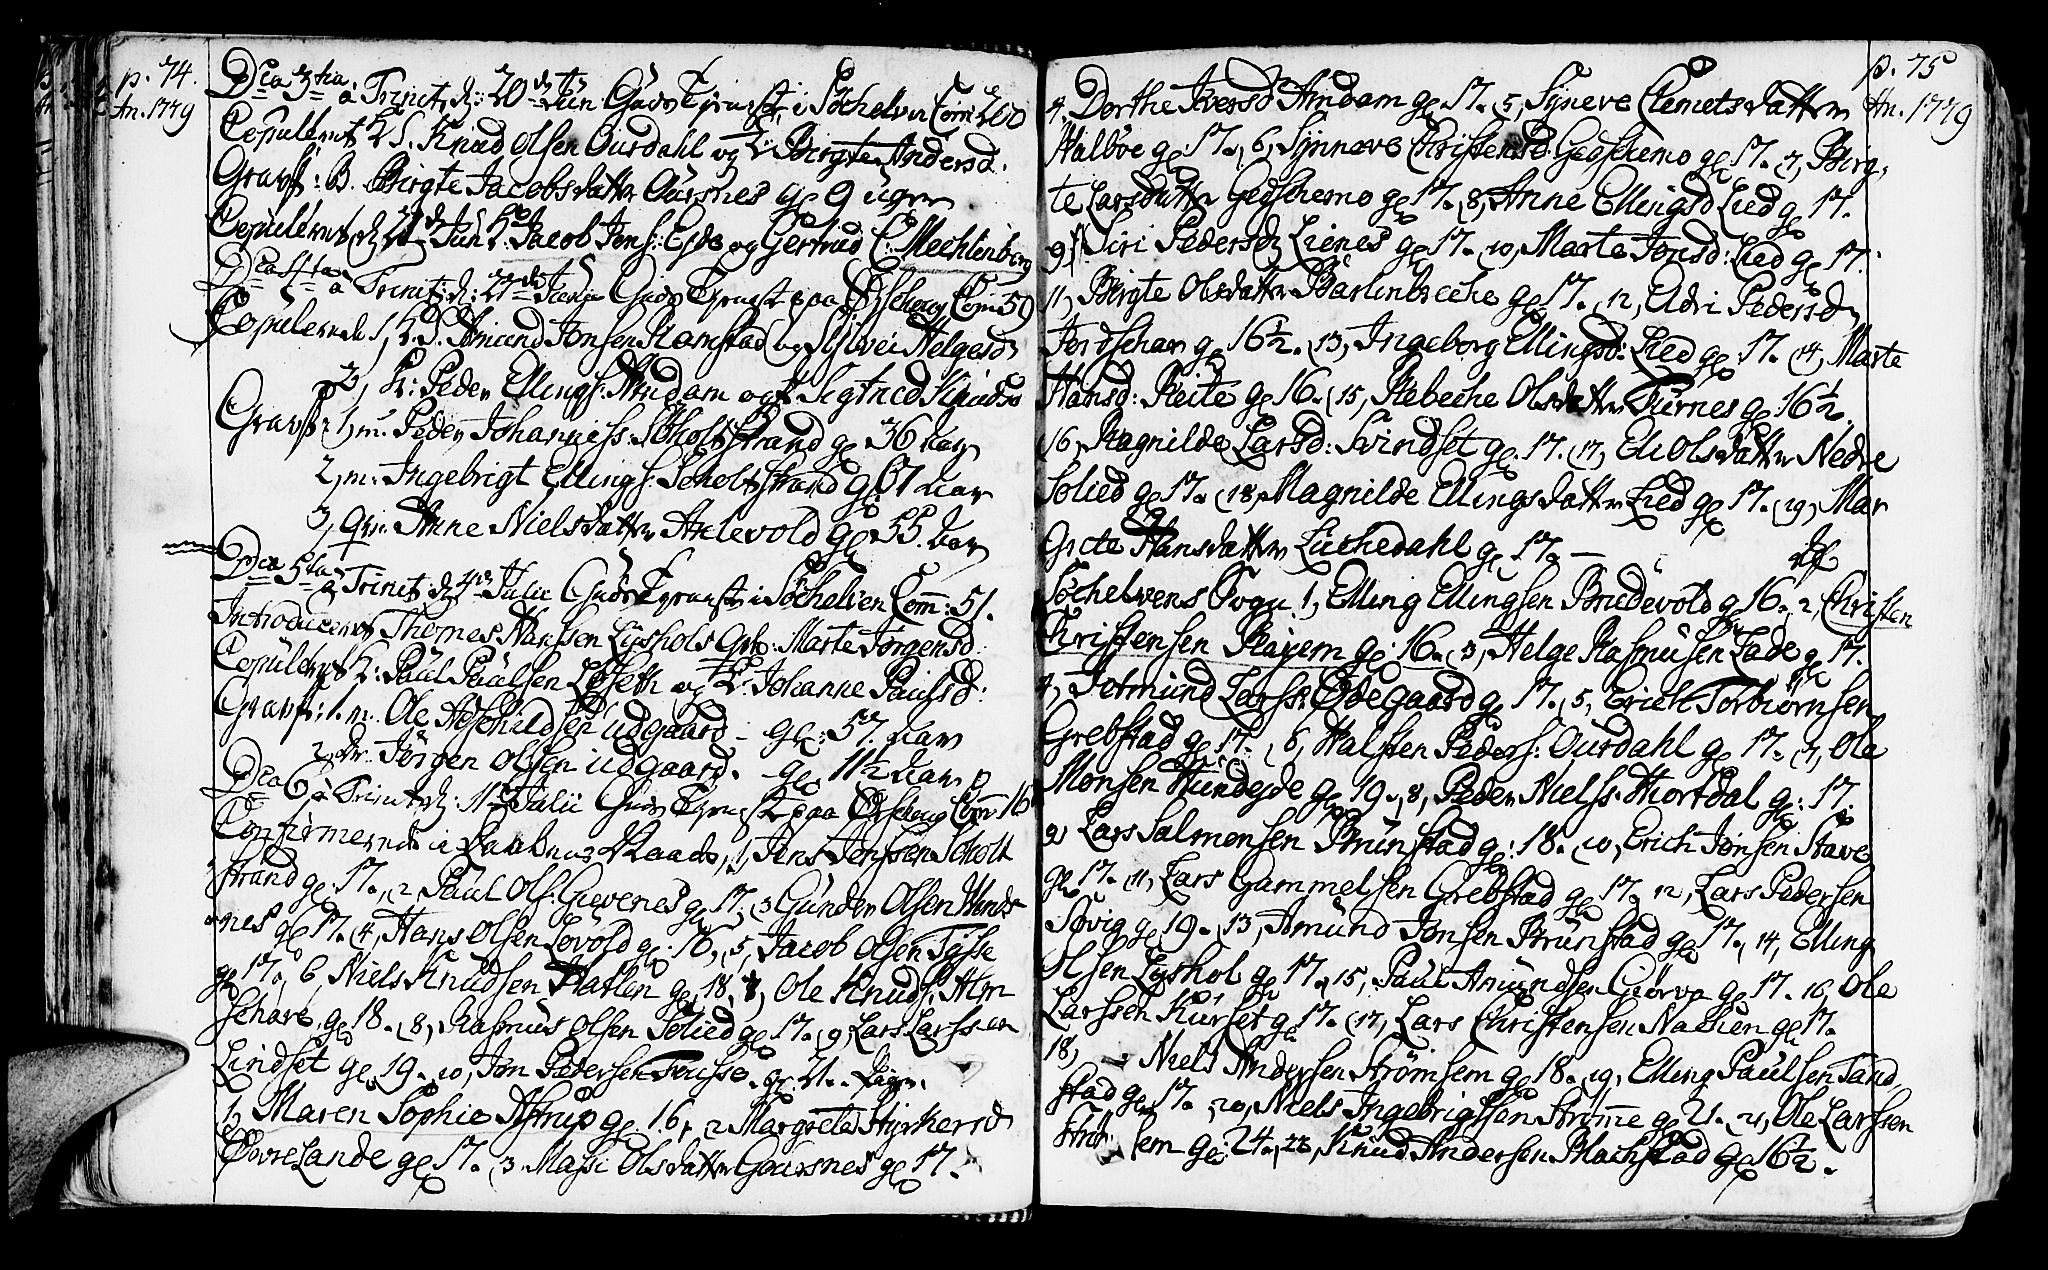 p. 74.
An. 1779
Dca 3tia à Trinit: d: 20de Jun Guds Tjenest i Söchelven Com: 200
Copulerede K S. Knud Olsen Ourdahl og Birgte Andersd.
Gravf: B. Birgte Jacobsdatter Aursnes gl 9 ugr
Copuleret d 21de Jun K. Jacob Jens: Eyde og Gertrud C. Mechlenborg
Dca 4ta à Trinit: d: 27de Junij Guds Tjenest paa Ørschoug Com: 59
Copulerede 1, K. S. Amund Jonsen Ramstad og Sylwei Helgesd
2, K: Peder Ellings: Amdam og Sigtrud Knuds
Gravf: 1, m. Peder Johanness: Scholtstrand gl 36 aar
2, m: Ingebrigt Ellings: Scholtstrand gl 67 aar
3, qv: Anne Nielsdatter Andevold gl 55. aar
Dca 5ta à Trinit: d 4de Julii Guds Tjenest i Söchelven Com: 51.
Introduceret Thomes Hanssen Lyshols Qvi: Marte Jörgensd
Copulerede K: Paul Paulsen Löseth og Johanne Paulsd:
Gravf: 1. m. Ole Aschildsen udgaard – gl: 57. aar
2 dr. Jörgen Olsen udgaard. – gl. 11½ aar
Dca 6 à Trinit d: 11te Julii Guds Tjenest paa Ørschoug Com 16
Confirmerede i Daabens Naade, 1, Jens Jenssen Scholt
strand gl. 17. 2 Paul Ols: Gievenes gl 17. 3 Gunder Olsen Hunds
nes gl 17. 4, Hans Olsen Lövold gl. 16, 5, Jacob Olsen Tysse
gl 17. 6, Niels Knudsen Hatlen gl. 18. 7, Ole Knuds: Alm
schare gl 18. 8, Rasmus Olsen Solied gl 17. 9, Lars Larssen
Lindset gl 19. 10, Jon Pedersen Tusse. gl. 21. Piger.
1, Maren Sophie Astrup gl. 16, 2 Margrete Styrkersd
Øvre Lande gl 17. 3 Massi Olsdatter Goursnes gl 17.
p. 75
An. 1779
4. Dorthe Iversd Amdam gl 17. 5, Syneve Clemetsdatter
Halboe gl. 17. 6, Synneve Christensd: Gedschemo gl 17. 7, Birg,
te Larsdatter Gedschemo gl 17. 8, Anne Ellingsd Lied gl 17.
9, Siri Pedersd Lienes gl 17. 10, Marte Jonsd: Lied gl 17.
11, Birgte Olsdatter Barlinbeche gl 17. 12, Adri Pedersd
Jordschar gl 16½. 13, Ingeborg Ellingsd: Lied gl 17. 14, Marte
Hansd: Reite gl 16. 15, Rebeche Olsdatter Furnes gl 16½.
16, Ragnilde Larsd: Svindset gl. 17. 17, Eli Olsdatter Nedre
Solied gl 17. 18, Magnilde Ellingsdatter Lied gl 17. 19, Mar
Grete Hansdatter Luchedahl gl 17. –
Söchelvens Sogn 1, Elling Ellingsen Brudevold gl 16. 2, Christen
Christensen Rayem gl: 16. 3, Helge Rasmusen Lade gl 17.
4, Tormund Larss: Ødegaard gl 17. 5, Erich Torbiörnsen
Grebstad gl 17. 6, Halsten Peders: Ourdahl gl 17. 7, Ole
Monsen Hundeyde gl 19. 8, Peder Niels: Hiortdal gl: 17.
9 Lars Salmonsen Brunstad gl: 18. 10, Erich Jonsen Stave
gl 17. 11, Lars Gammelsen Grebstad gl 17. 12, Lars Pedersen
Søvig gl 19. 13, Amund Jonsen Brunstad gl 17. 14, Elling
Olsen Lyshol gl 17. 15, Paul Amundsen Giörva gl 17. 16, Ole
Larssen Kurset gl 17. 17, Lars Christensen Nakien gl 17.
18, Niels Andersen Strömsem gl 18. 19, Elling Paulsen Tand,
stad gl 17. 20, Niels Ingebrigtsen Strömme gl 21. 21, Ole Larssen
sem gl: 24. 22, Knud Andersen Machstad gl 16½.